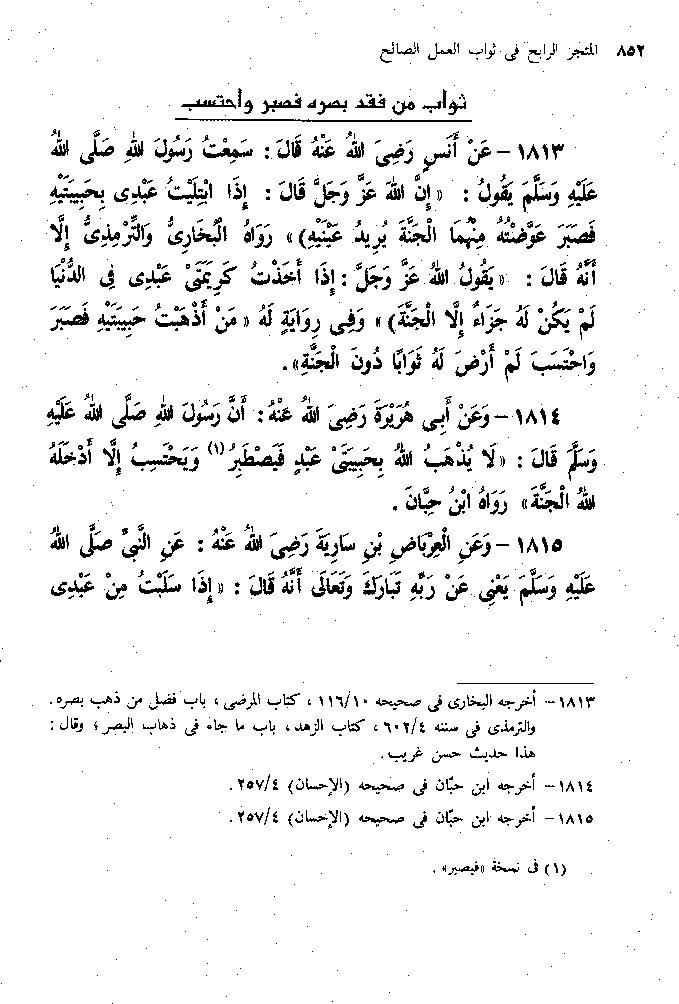 ٨٥٢ المتجر الرابح فى ثواب العمل الصالح
ثواب من فقد بصره فصبر واحتسب
١٨١٣ – عَنْ أَنَسٍ رَضِىَ اللهُ عَنْهُ قَالَ : سَمِعْتُ رَسُولَ اللهِ صَلَّى اللهُ
عَلَيْهِ وَسَلَّمَ يَقُولُ : « إِنَّ اللهَ عَزَّ وَجَلَّ قَالَ : إِذَا ابْتَلَيْتُ عَبْدِى بِحَبِيبَتَيْهِ
فَصَبَرَ عَوَّضْتُهُ مِنْهُمَا الْجَنَّةَ يُرِيدُ عَيْنَيْهِ) » رَوَاهُ الْبُخَارِىُّ وَالتِّرْمِذِىُّ إِلَّا
أَنَّهُ قَالَ : « يَقُولُ اللهُ عَزَّ وَجَلَّ : إِذَا أَخَذْتُ كَرِيمَتَىْ عَبْدِى فِى الدُّنْيَا
لَمْ يَكُنْ لَهُ جَزَاءٌ إِلَّا الْجَنَّةَ) » وَفِى رِوَايَةٍ لَهُ « مَنْ أَذْهَبْتُ حَبِيبَتَيْهِ فَصَبَرَ
وَاحْتَسَبَ لَمْ أَرْضَ لَهُ ثَوَابًا دُونَ الْجَنَّةِ» .
١٨١٤ – وَعَنْ أَبِى هُرَيْرَةَ رَضِىَ اللهُ عَنْهُ : أَنَّ رَسُولَ اللهِ صَلَّى اللهُ عَلَيْهِ
وَسَلَّمَ قَالَ : «لَا يُذْهَبُ اللهُ بِحَبِيبَتَىْ عَبْدٍ فَيَصْطَبِرُ (١) وَيَحْتَسِبُ إِلَّا أَدْخَلَهُ
اللهُ الْجَنَّةَ» رَوَاهُ ابْنُ حِبَّانَ .
١٨١٥ – وَعَنِ الْعِرْبَاضِ بْنِ سَارِيَةَ رَضِىَ اللهُ عَنْهُ : عَنِ النَّبِىِّ صَلَّى اللهُ
عَلَيْهِ وَسَلَّمَ يَعْنِى عَنْ رَبِّهِ تَبَارَكَ وَتَعَالَى أَنَّهُ قَالَ : « إِذَا سَلَبْتُ مِنْ عَبْدِى
١٨١٣ – أخرجه البخارى فى صحيحه ١١٦/١٠ ، كتاب المرضى ، باب فضل من ذهب بصره .
والترمذى فى سننه ٦٠٢/٤ ، كتاب الزهد ، باب ما جاء فى ذهاب البصر ؛ وقال :
هذا حديث حسن غريب .
١٨١٤ – أخرجه ابن حبّان فى صحيحه (الإحسان) ٢٥٧/٤ .
١٨١٥ – أخرجه ابن حبّان فى صحيحه (الإحسان) ٢٥٧/٤ .
(١) فى نسخة «فيصبر» .